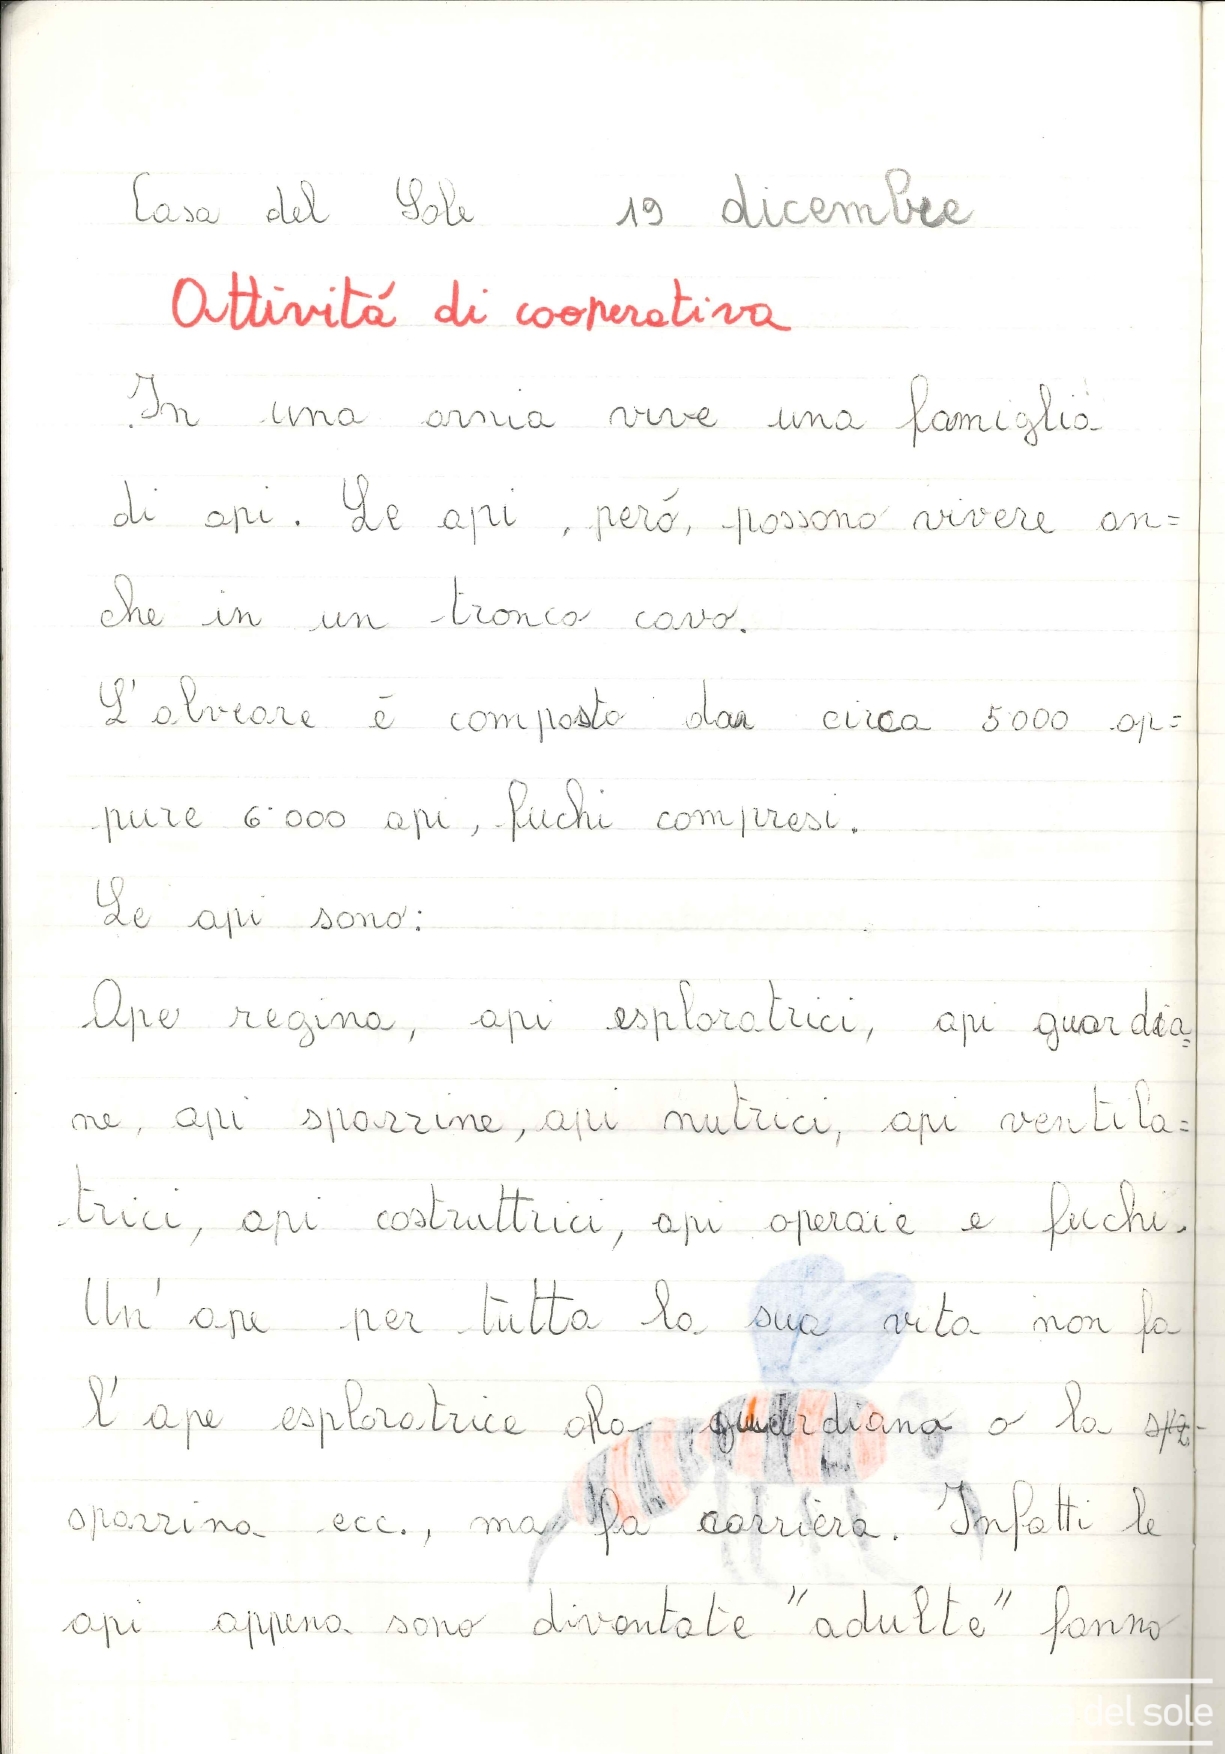 Casa del Sole 19 dicembre
Attivitá di cooperativa
In una arnia vive una famiglia
di api. Le api, peró, possono vivere an=
che in un tronco cavo.
L'alveare é composto da circa 5000 op=
pure 6.000 api, fuchi compresi.
Le api sono:
Ape regina, api esploratrici, api guardia=
ne, api spazzine, api nutrici, api ventila=
trici, api costruttrici, api operaie e fuchi.
Un'ape per tutta la sua vita non fa
l'ape esploratrice o la guardiana o la
spazzina ecc., ma fa carriera. Infatti le
api appena sono diventate "adulte" fanno
del sole